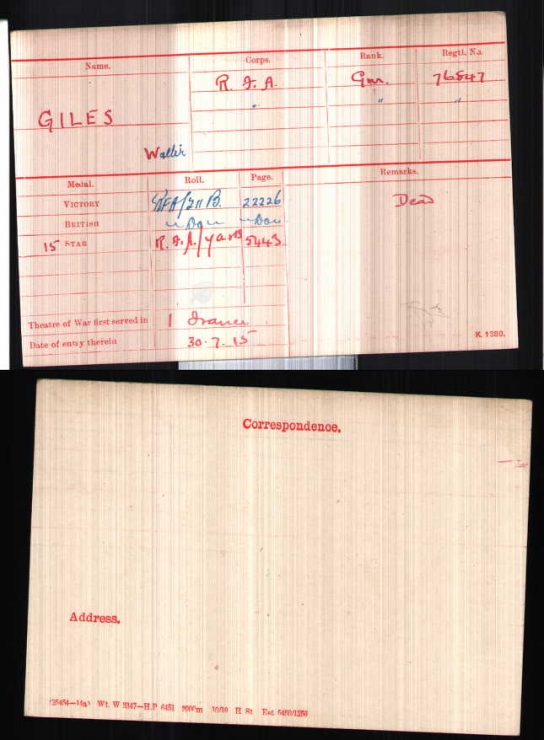 Name. Corps. Rank. Regtl. No.
R. F. A. Gnr. 76847
" " "
GILES
Walter
Medal. Roll. Page. Remarks.
VICTORY RFA/211 B. 22226 Dead
BRITISH - Do - - Do -
15 STAR R.F.A./ 5443
Theatre of War first served in 1 France
Date of entry therein 30-7-15
K. 1380.
Correspondence.
Address.
Wt. W 5347—H.P 6451 10/19 H St